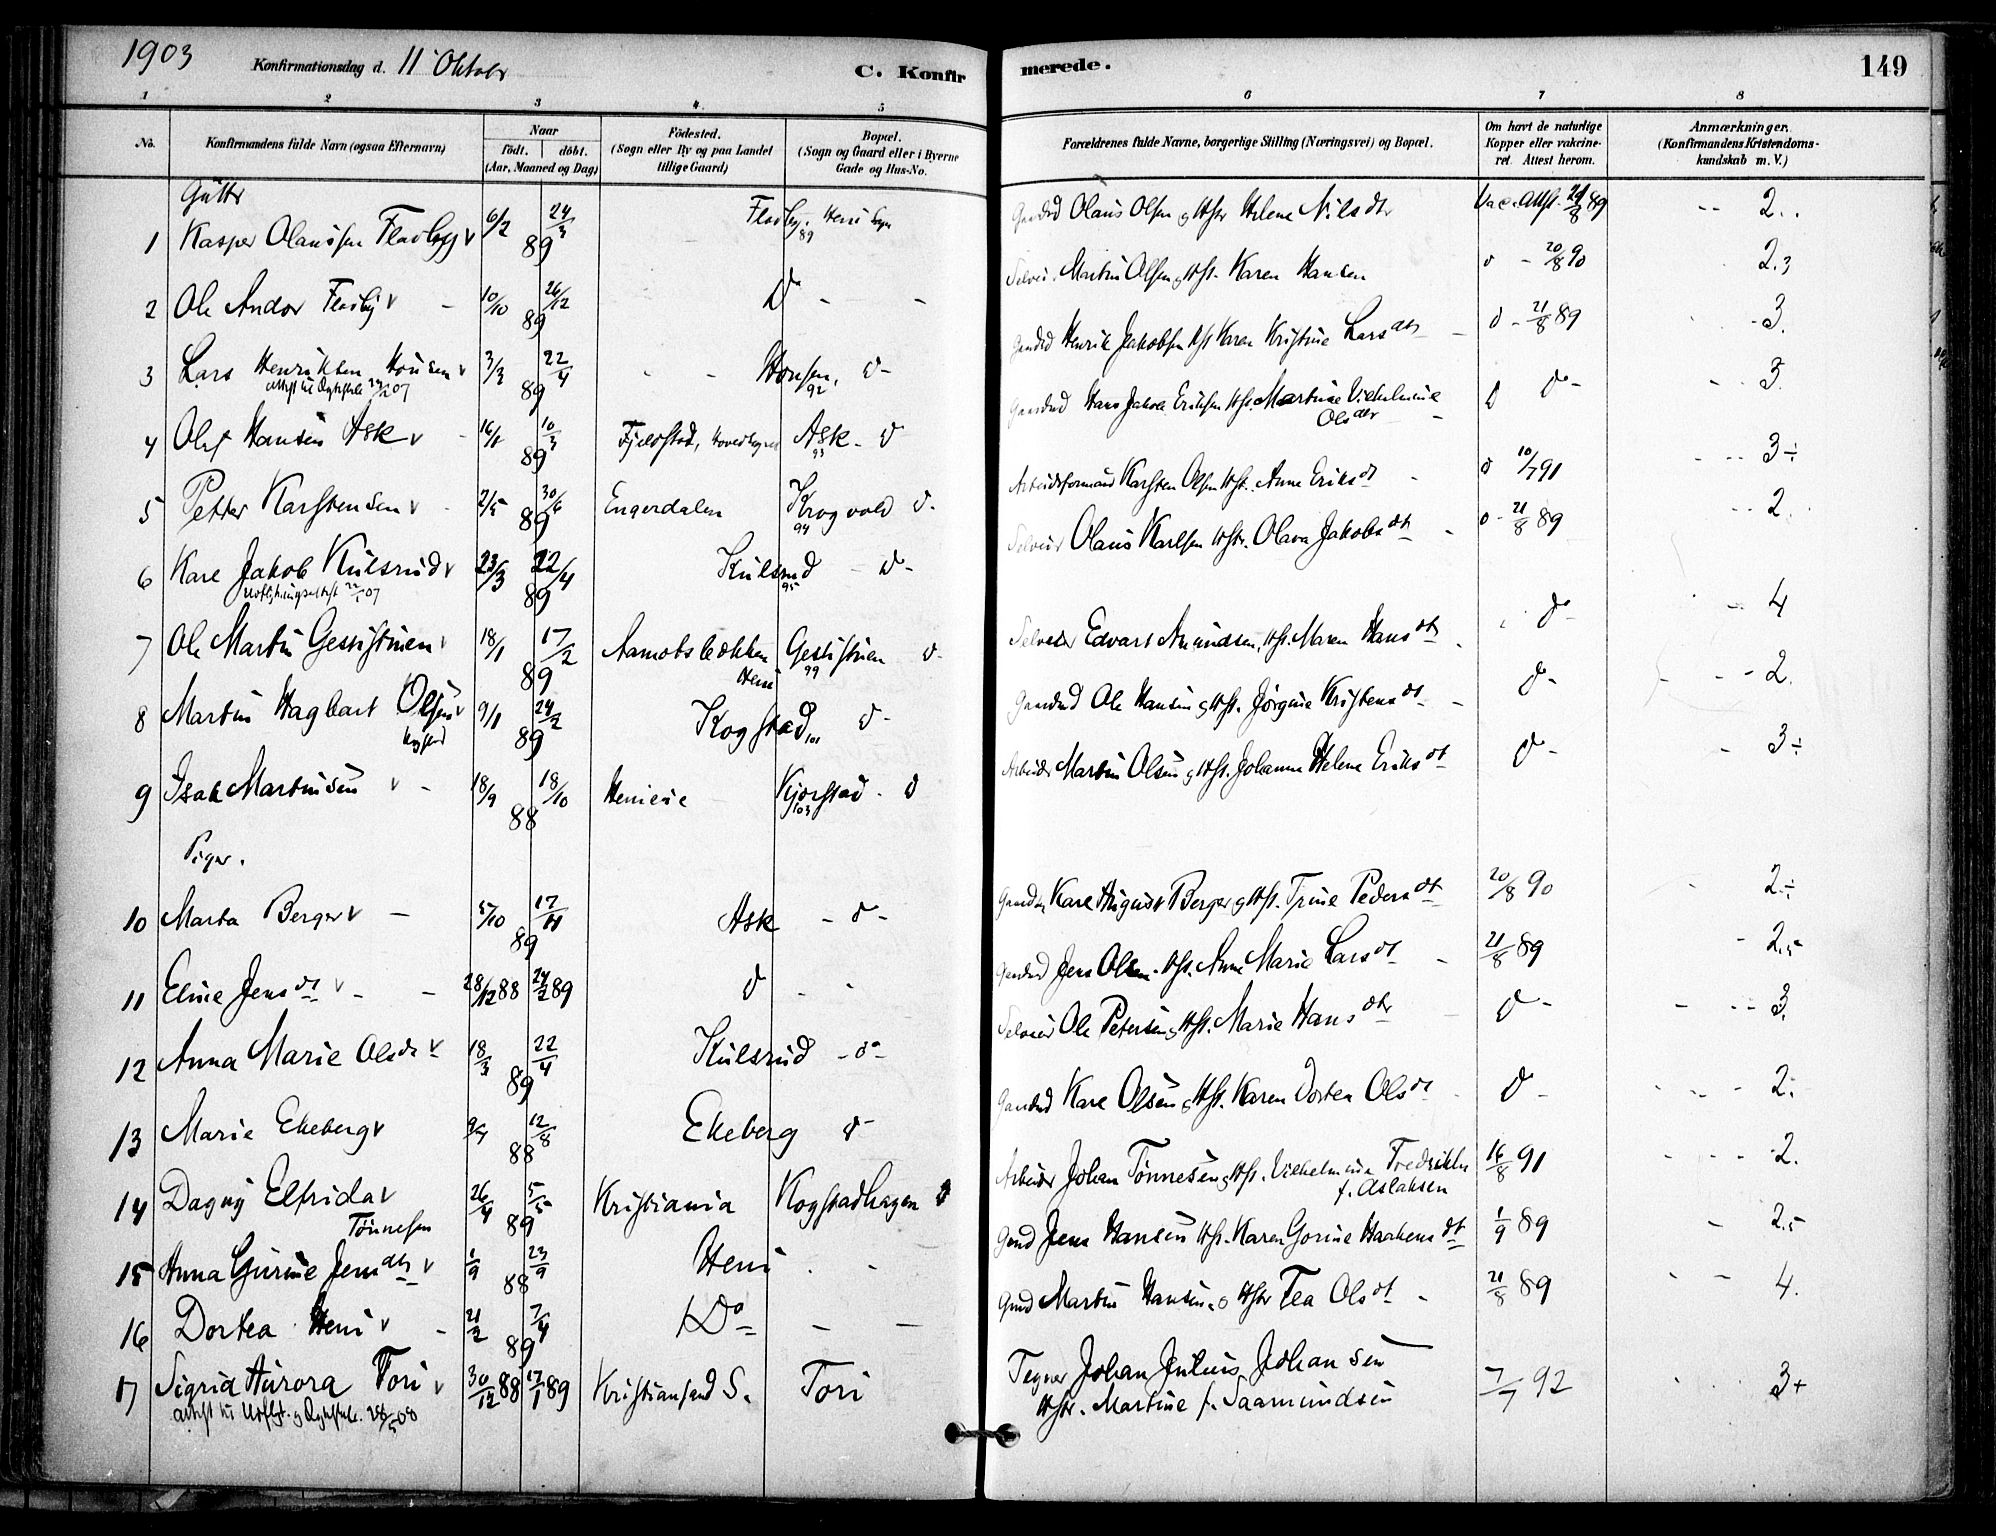 1903 Konfirmationsdag d. 11 Oktobr C. Konfir
merede. 149
1 2 3 4. 5 6 7 8
No. Konfirmandens fulde Navn (ogsaa Efternavn) Naar födt. döbt. (Aar, Maaned og Dag) Födested. (Sogn eller By og paa Landet tillige Gaard) Bopæl. (Sogn og Gaard eller i Byerne Gade og Hus-No. Forældrenes fulde Navne, borgerlige Stilling (Næringsvei) og Bopæl. Om havt de naturlige Kopper eller vakcineret. Attest herom. Anmærkninger. (Konfirmandens Kristendomskundskab m. V.)
Gutter
1 Kasper Olaussen Fladbyv 6/2 24/3 89 Fladby. 89 Heni Sogn Gaardbd Olaus Olsen og Hstr Helene Nilsdtr Vac. Attst. 21/8 89 2.
2 Ole Andor Fladbyv 10/10 26/12 89 Do Selveier Martin Olsen og Hst. Karen Hansen d - 20/8 90 2.3
3 Lars Henriksen Housen v 3/3 22/4 89 Housen, 92 d- Gaardbd Henrik Jakobsen Hst Karen Kristine Larsdtr d - 21/8 89 3.
4 Olaf Hansen Ask v 16/1 10/3 89 Fjeldstad, Hovedsognet Ask 93 d Gaardbrd Hans Jakob Eriksen Hst. Martine Vilhelmine Olsdtr d d- 3.
5 Petter Karstensen v 2/5 30/6 89 Engerdalen Krogvold 94 d. Arbeidsformand Karsten Olsen Hst. Anne Eriksdt d 10/7 91 3÷
6 Karl Jakob Kulsrud v 23/3 22/4 89 Kulsrud 95 d- Selveier Olaus Karlsen Hstr. Olava Jakobsdt d - 21/8 89 2.
Udflytningsattest 22/1 07
7 Ole Martin Gesistuen v 18/1 17/2 89 Aamotsbækken Heni Gesistuen 99 d Selveier Edvart Amundsen, Hst. Maren Hansdtr d- 4
8 Martin Hagbart Olsen v Kogstad 9/1 24/2 89 Kogstad 101 d- Gaardbd Ole Hansen og Hst. Jørgine Kristensdt d- 2.
9 Isak Martinsen v 18/9 18/10 88 Henieie Kjorstad 103 d Arbeider Martin Olsen og Hst. Johanne Helene Eriksdt d- 3÷
Piger.
10 Marta Berger v 5/10 17/11 89 Ask - d- Gaardbr. Karl August Berger og Hst. Trine Pedersdt 20/8 90 2.÷
11 Eline Jensdt v 28/12 88 24/2 89 d Gaardbd Jens Olsen. Hst. Anne Marie Larsdt 21/8 89 2.5
12 Anna Marie Olsdt v 18/3 22/4 89 Kulsrud - d- Selveier Ole Petersen og Hst. Marie Hansdtr d- 3.
13 Marie Ekeberg v 9/7 12/8 88 Ekeberg d- Gaardbd Karl Olsen og Hst. Karen Dortea Olsdt d- 2÷
14 Dagny Elfrida v Tønnesen 26/4 5/5 89 Kristiania Kogstadhagen d Arbeider Johan Tønnesen og Hst. Vilhelmine Fredrikke f. Aslaksen 16/8 91 2.
15 Anna Gurine Jensdtr v 1/9 23/9 88 Heni Gmd Jens Hansen Hst. Karen Gorine Haakensdt 1/9 89 2.5
16 Dortea Heni v 21/2 7/4 89 Do Gmd Martin Hansen o Hstr Tea Olsdt 21/8 89 4.
17 Sigrid Aurora Tori v 30/12 88 17/1 89 Kristiansand S. Tori Tegner Johan Julius Johansen Hstr. Martine f. Saamundsen 7/7 92 3+